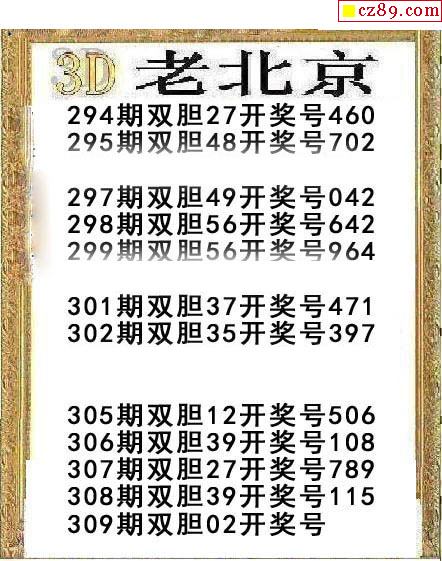 cz89.com
3D 老北京
294期双胆27开奖号460
295期双胆48开奖号702
297期双胆49开奖号042
298期双胆56开奖号642
299期双胆56开奖号964
301期双胆37开奖号471
302期双胆35开奖号397
305期双胆12开奖号506
306期双胆39开奖号108
307期双胆27开奖号789
308期双胆39开奖号115
309期双胆02开奖号